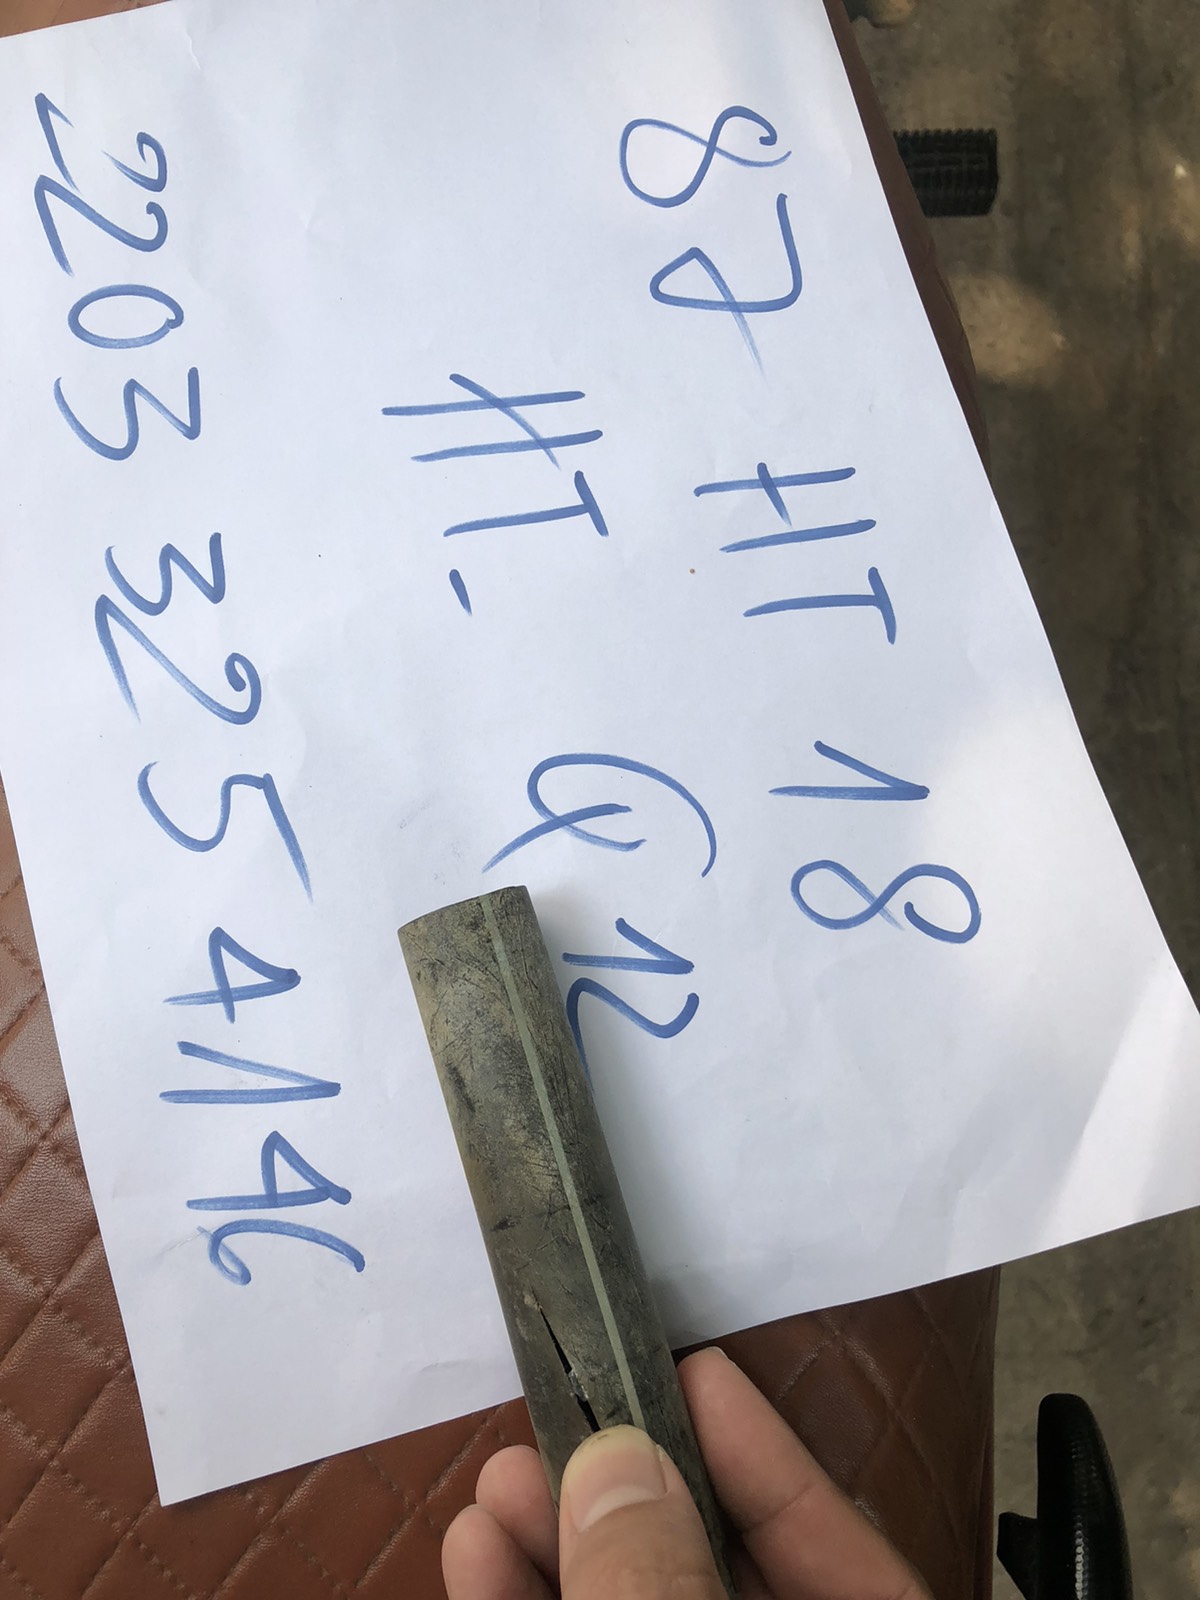 87 HT 18
HT - Q12
2203 325 4146